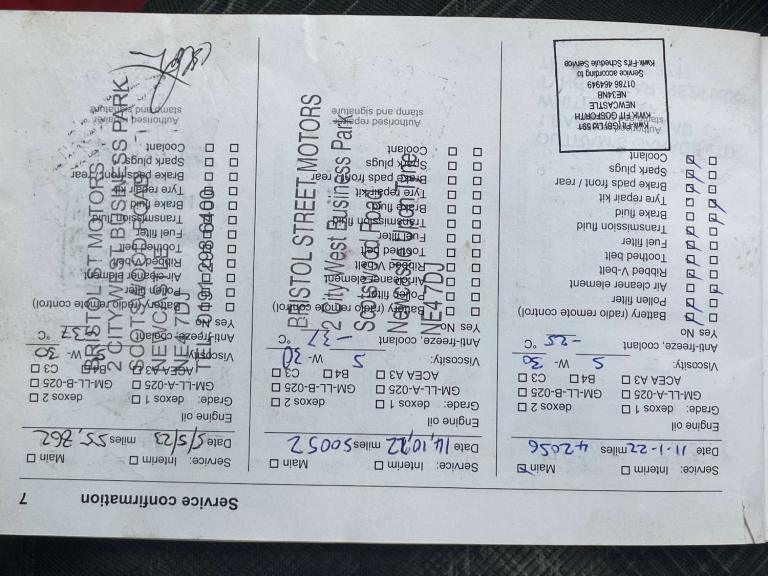 Service confirmation 7
Service: Interim Main
Date 11-1-22 miles 42056
Engine oil
Grade: dexos 1 dexos 2
GM-LL-A-025 GM-LL-B-025
ACEA A3 B4 C3
Viscosity: 5 W- 30
Anti-freeze, coolant -35 °C
Yes No
Battery (radio remote control)
Pollen filter
Air cleaner element
Ribbed V-belt
Toothed belt
Fuel filter
Transmission fluid
Brake fluid
Tyre repair kit
Brake pads front / rear
Spark plugs
Coolant
Kwik-Fit (GB) Ltd 591
KWIK-FIT GOSFORTH
NEWCASTLE
NE34NB
01786 464949
Service according to
Kwik-Fit's Schedule Service
Service: Interim Main
Date 14/10/22 miles 50052
Engine oil
Grade: dexos 1 dexos 2
GM-LL-A-025 GM-LL-B-025
ACEA A3 B4 C3
Viscosity: 5 W- 30
Anti-freeze, coolant -37 °C
Yes No
Battery (radio remote control)
Pollen filter
Air cleaner element
Ribbed V-belt
Toothed belt
Fuel filter
Transmission fluid
Brake fluid
Tyre repair kit
Brake pads front / rear
Spark plugs
Coolant
Authorised repairer
stamp and signature
BRISTOL STREET MOTORS
2 CityWest Business Park
Scotswood Road
Newcastle Upon Tyne
NE4 7DJ
Service: Interim Main
Date 5/5/23 miles 55,862
Engine oil
Grade: dexos 1 dexos 2
GM-LL-A-025 GM-LL-B-025
ACEA A3 B4 C3
Viscosity: 5 W- 30
Anti-freeze, coolant -37 °C
Yes No
Battery (radio remote control)
Pollen filter
Air cleaner element
Ribbed V-belt
Toothed belt
Fuel filter
Transmission fluid
Brake fluid
Tyre repair kit
Brake pads front / rear
Spark plugs
Coolant
Authorised repairer
stamp and signature
BRISTOL ST MOTORS
2 CITY WEST BUSINESS PARK
SCOTSWOOD ROAD
NEWCASTLE
NE4 7DJ
TEL: 0191 298 6400